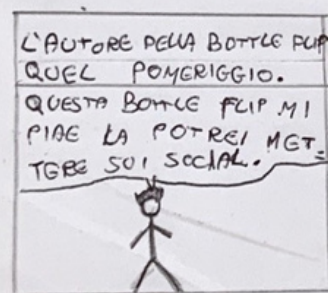 L'AUTORE DELLA BOTTLE FLIP
QUEL POMERIGGIO.
QUESTA BOTTLE FLIP MI
PIAE LA POTREI MET=
TERE SUI SOCIAL..